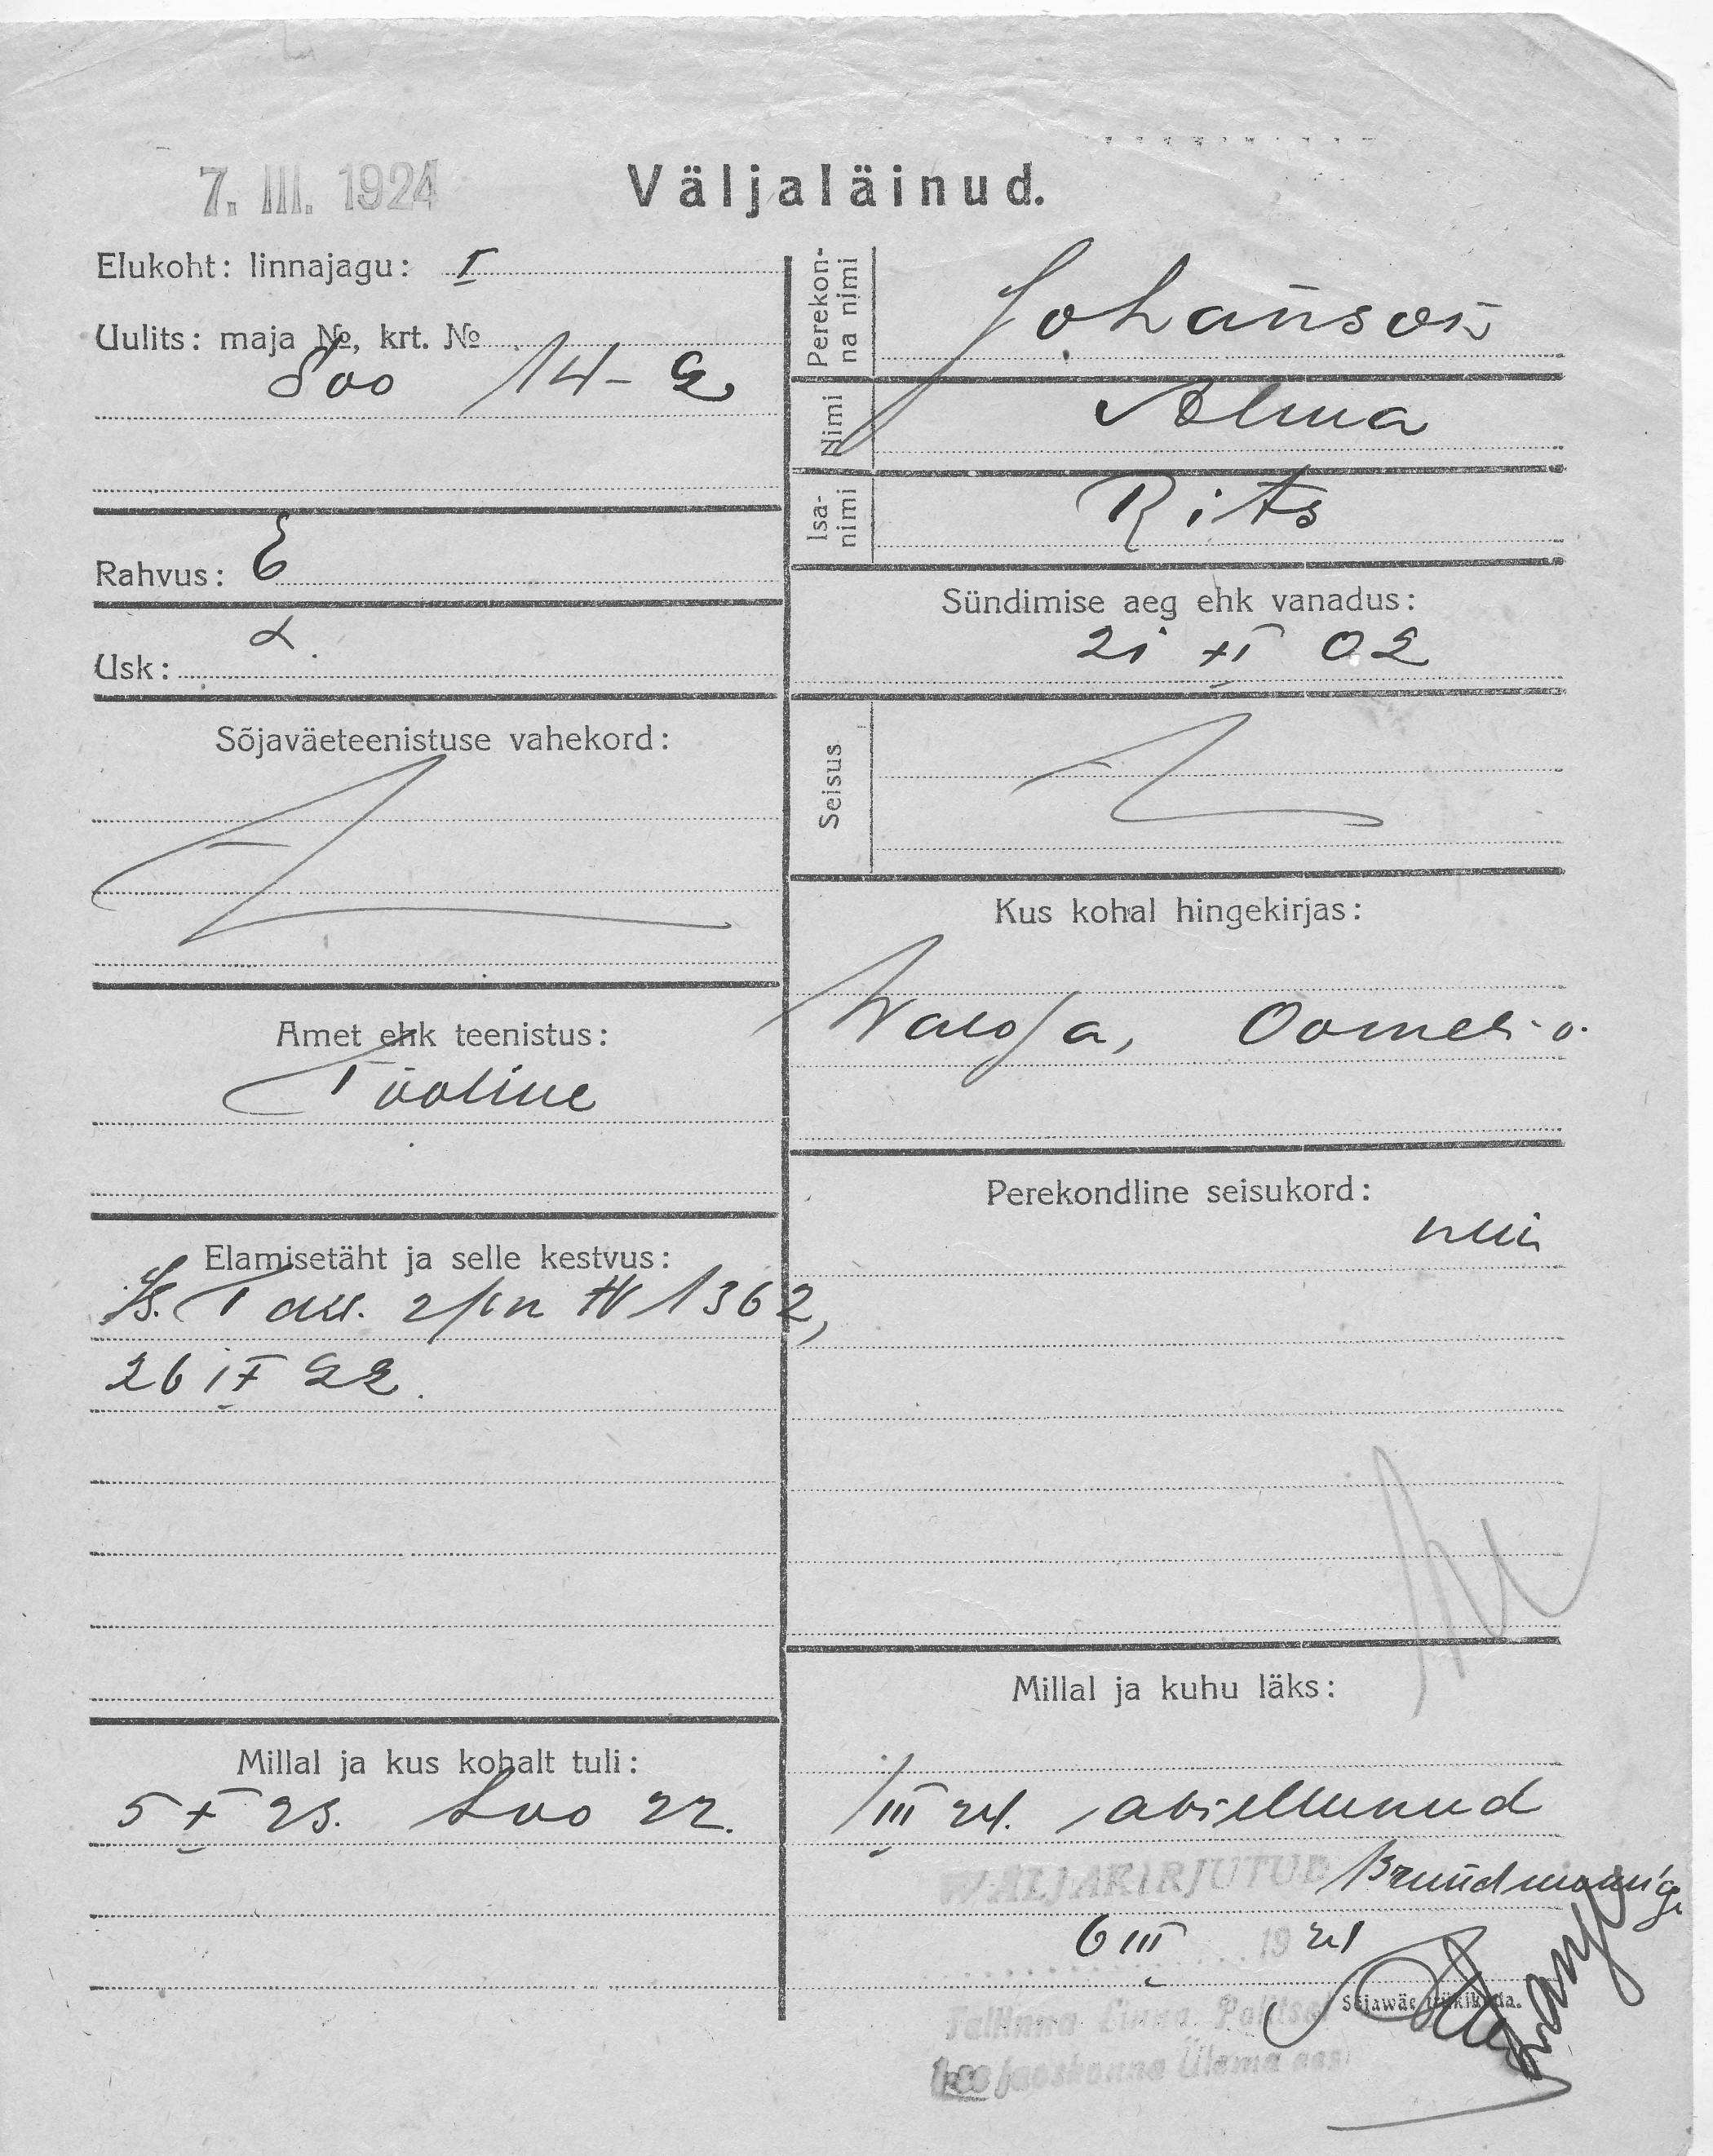 7. III. 1924
Väljaläinud.
Elukoht: linnajagu: I
Uulits: maja №, krt. №
Soo 14-2
Rahvus: E
Usk: L.
Sõjaväeteenistuse vahekord:
Amet ehk teenistus:
Tööline
Elamisetäht ja selle kestvus:
Is. Tall. № 1362,
26 IX 22.
Millal ja kus kohalt tuli:
5 X 23. Soo 22.
Perekon-
na nimi
Johanson
Nimi
Alma
Isa-
nimi
Rits
Sündimise aeg ehk vanadus:
21 XI 02
Seisus
Kus kohal hingekirjas:
Perekondline seisukord:
Millal ja kuhu läks:
/III 24. abiellunud
WÄLJAKIRJUTUD
6 III 1924
Tallinna Linna Politsei
jaoskonna Ülema
Sõjawäe trükikoda.